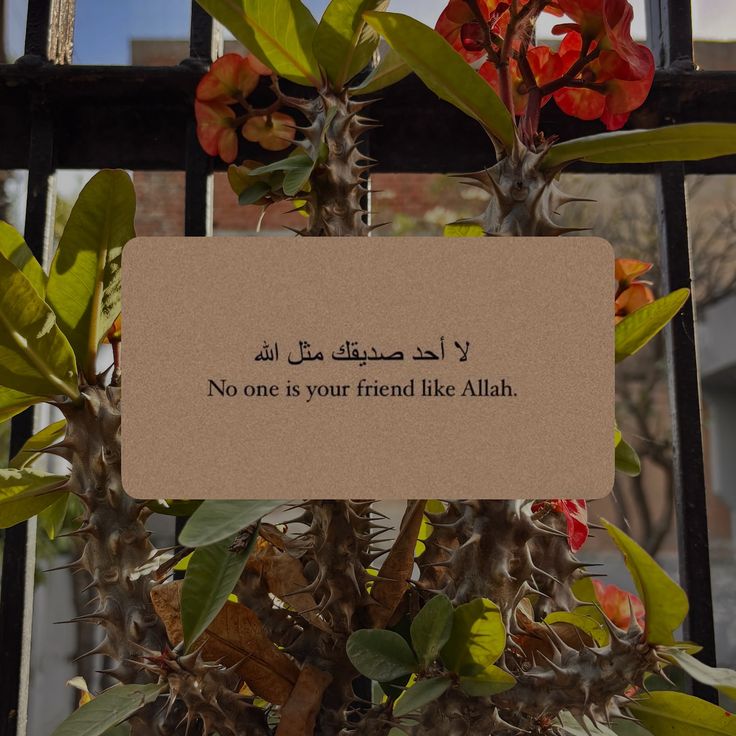 لا أحد صديقك مثل الله
No one is your friend like Allah.